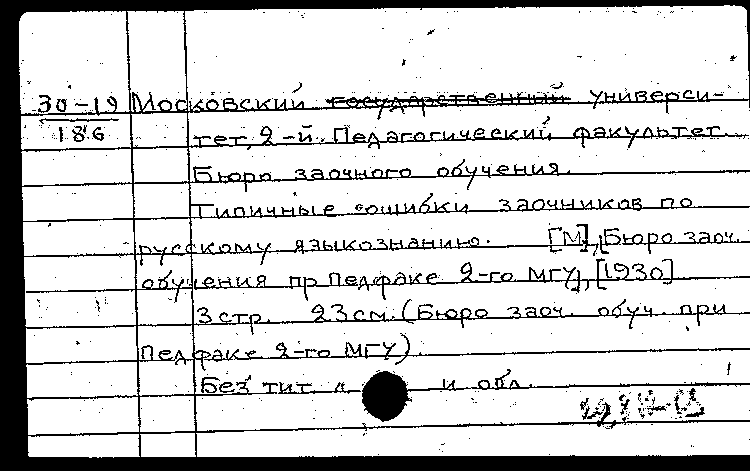 30-19 Московский государственный универси-
186 тет, 2-й. Педагогический факультет.
Бюро заочного обучения.
Типичные ошибки заочников по
русскому языкознанию. [М], [Бюро заоч.
обучения пр Педфаке 2-го МГУ], [1930]
3 стр. 23 см. (Бюро заоч. обуч. при
Педфаке 2-го МГУ).
Без тит. л. и обл.